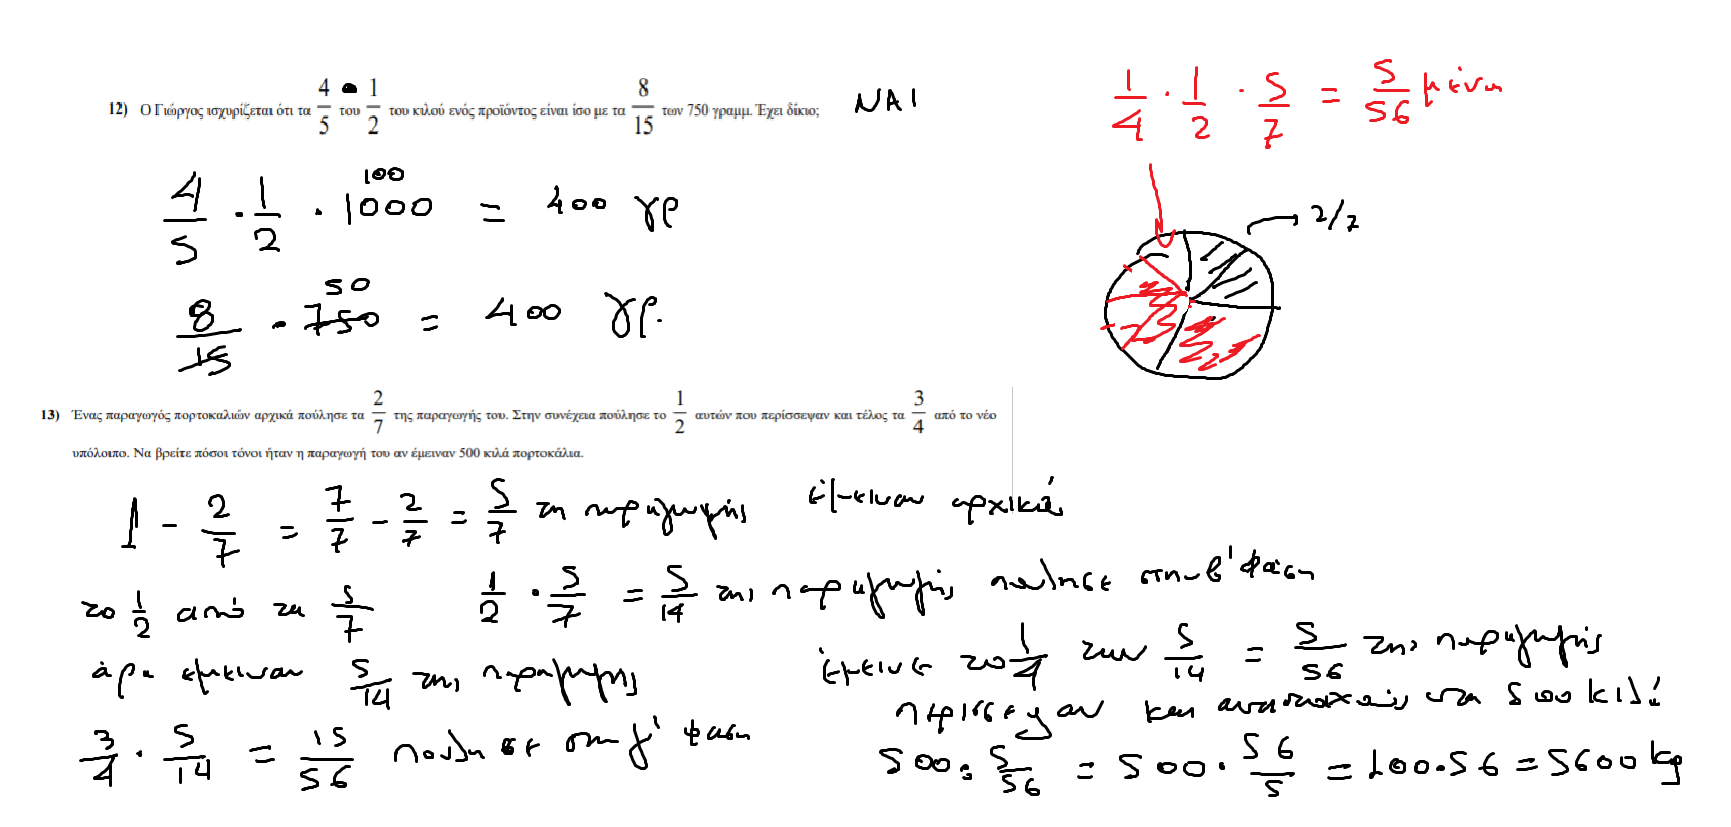 12) Ο Γιώργος ισχυρίζεται ότι τα 4/5 του 1/2 του κιλού ενός προϊόντος είναι ίσο με τα 8/15 των 750 γραμμ. Έχει δίκιο; ΝΑΙ
1/4 · 1/2 · 5/7 = 5/56 μένει
100
4/5 · 1/2 · 1000 = 400 γρ
2/7
50
8/15 · 750 = 400 γρ.
13) Ένας παραγωγός πορτοκαλιών αρχικά πούλησε τα 2/7 της παραγωγής του. Στην συνέχεια πούλησε το 1/2 αυτών που περίσσεψαν και τέλος τα 3/4 από το νέο
υπόλοιπο. Να βρείτε πόσοι τόνοι ήταν η παραγωγή του αν έμειναν 500 κιλά πορτοκάλια.
1 - 2/7 = 7/7 - 2/7 = 5/7 τη παραγωγής έμειναν αρχικά
το 1/2 από τα 5/7 1/2 · 5/7 = 5/14 της παραγωγής πούλησε στην β' φάση
άρα εμειναν 5/14 της παραγωγής
έμεινε το 1/4 των 5/14 = 5/56 της παραγωγής
περίσσεψαν και αντιστοιχούν στα 500 κιλά
3/4 · 5/14 = 15/56 πουλησε στη γ' φαση
500 : 5/56 = 500 · 56/5 = 100·56 = 5600 kg